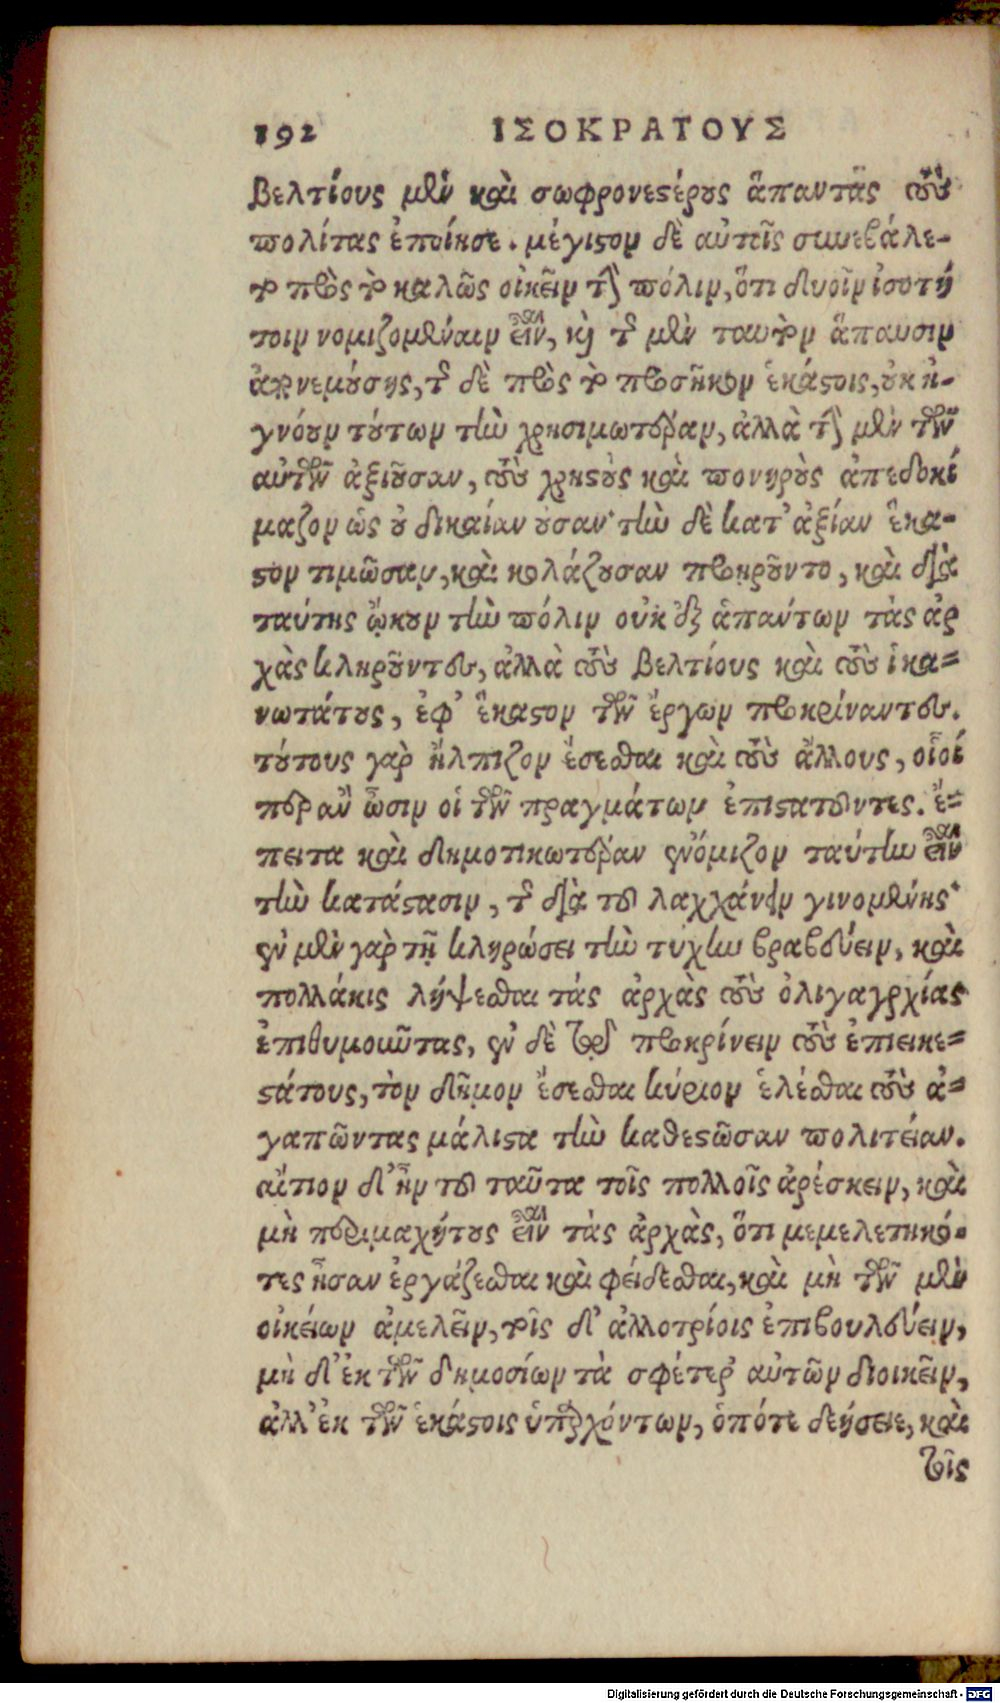 192 ΙΣΟΚΡΑΤΟΥΣ
βελτίους μὲν καὶ σωφρονεστέρους ἅπαντας τοὺς
πολίτας ἐποίησε. μέγιστον δὲ αὐτοῖς συνεβάλε-
το πρὸς τὸ καλῶς οἰκεῖν τὴν πόλιν, ὅτι δυοῖν ἰσοτή
τοιν νομιζομέναιν εἶναι, καὶ τῆς μὲν ταυτὸν ἅπασιν
ἀπονεμούσης, τῆς δὲ πρὸς τὸ προσῆκον ἑκάστοις, οὐκ ἠ-
γνόουν τούτων τὴν χρησιμωτέραν, ἀλλὰ τὴν μὲν τῶν
αὐτῶν ἀξιοῦσαν, τοὺς χρηστοὺς καὶ πονηροὺς ἀπεδοκί
μαζον ὡς οὐ δικαίαν οὖσαν· τὴν δὲ κατ' ἀξίαν ἕκα-
στον τιμῶσαν, καὶ κολάζουσαν προῃροῦντο, καὶ διὰ
ταύτης ᾤκουν τὴν πόλιν οὐκ ἐξ ἁπάντων τὰς ἀρ
χὰς κληροῦντες, ἀλλὰ τοὺς βελτίους καὶ τοὺς ἱκα-
νωτάτους, ἐφ' ἕκαστον τῶν ἔργων προκρίναντες.
τούτους γὰρ ἤλπιζον ἔσεσθαι καὶ τοὺς ἄλλους, οἷοί
περ ἂν ὦσιν οἱ τῶν πραγμάτων ἐπιστατοῦντες. ἔ-
πειτα καὶ δημοτικωτέραν ἐνόμιζον ταύτην εἶναι
τὴν κατάστασιν, τῆς διὰ τοῦ λαχχάνειν γινομένης·
ἐν μὲν γὰρ τῇ κληρώσει τὴν τύχην βραβεύειν, καὶ
πολλάκις λήψεσθαι τάς ἀρχὰς τοὺς ὀλιγαρχίας
ἐπιθυμοῦντας, ἐν δὲ τῷ προκρίνειν τοὺς ἐπιεικε-
στάτους, τὸν δῆμον ἔσεσθαι κύριον ἑλέσθαι τοὺς ἀ-
γαπῶντας μάλιστα τὴν καθεστῶσαν πολιτείαν.
αἴτιον δ' ἦν τοῦ ταῦτα τοῖς πολλοῖς ἀρέσκειν, καὶ
μὴ περιμαχήτους εἶναι τὰς ἀρχὰς, ὅτι μεμελετηκό-
τες ἦσαν ἐργάζεσθαι καὶ φείδεσθαι, καὶ μὴ τῶν μὲν
οἰκείων ἀμελεῖν, τοῖς δ' ἀλλοτρίοις ἐπιβουλεύειν,
μὴ δ' ἐκ τῶν δημοσίων τὰ σφέτερ' αὐτῶν διοικεῖν,
ἀλλ' ἐκ τῶν ἑκάστοις ὑπαρχόντων, ὁπότε δεήσειε, καὶ
τοῖς
Digitalisierung gefördert durch die Deutsche Forschungsgemeinschaft - DFG